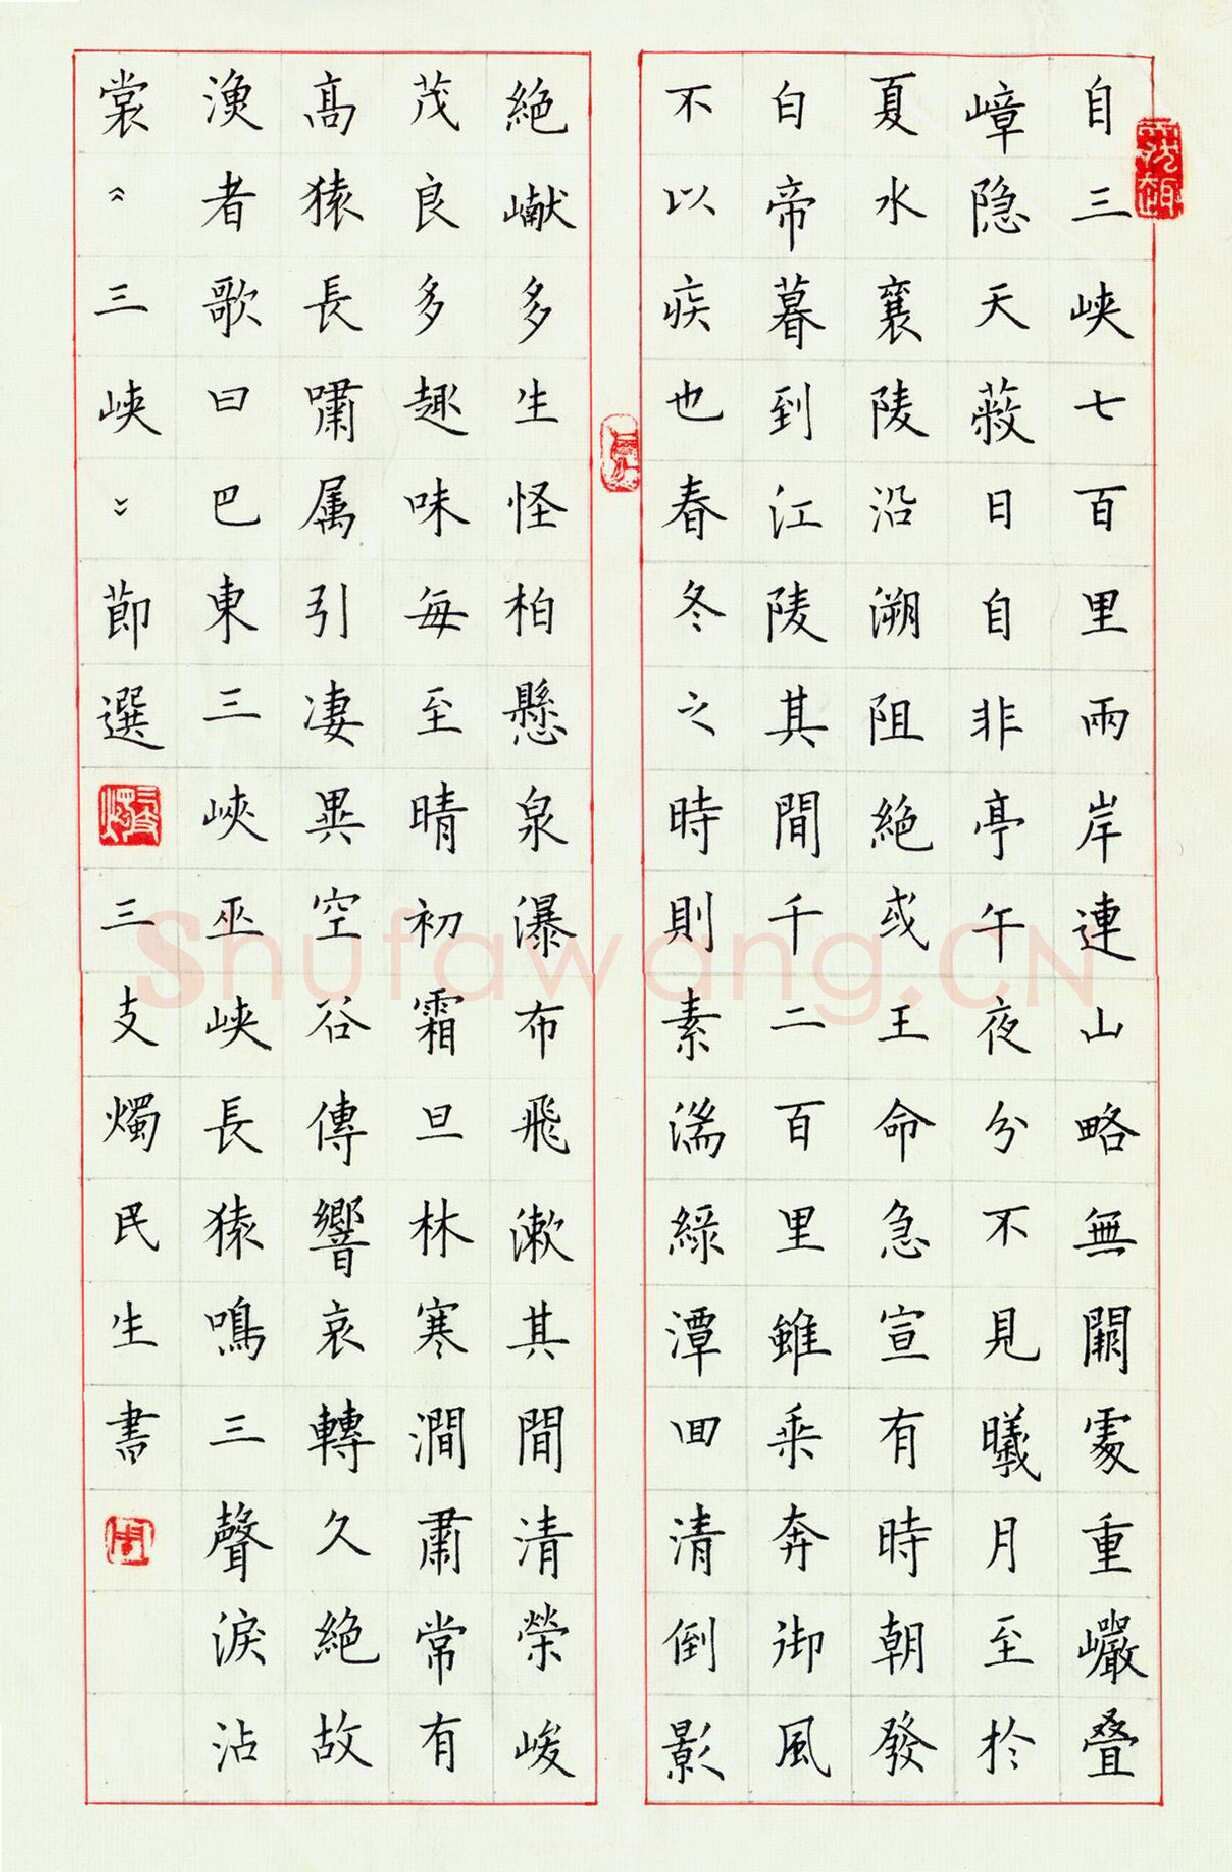 自三峡七百里兩岸連山略無闕處重巖叠
嶂隐天蔽日自非亭午夜分不見曦月至於
夏水襄陵沿溯阻絶或王命急宣有時朝發
白帝暮到江陵其間千二百里雖乘奔御風
不以疾也春冬之時則素湍緑潭回清倒影
絶巘多生怪柏懸泉瀑布飛漱其間清榮峻
茂良多趣味每至晴初霜旦林寒澗肅常有
高猿長嘯属引凄異空谷傳響哀轉久絶故
漁者歌曰巴東三峽巫峡長猿鳴三聲淚沾
裳《三峡》節選 三支燭民生書
Shufawang.CN